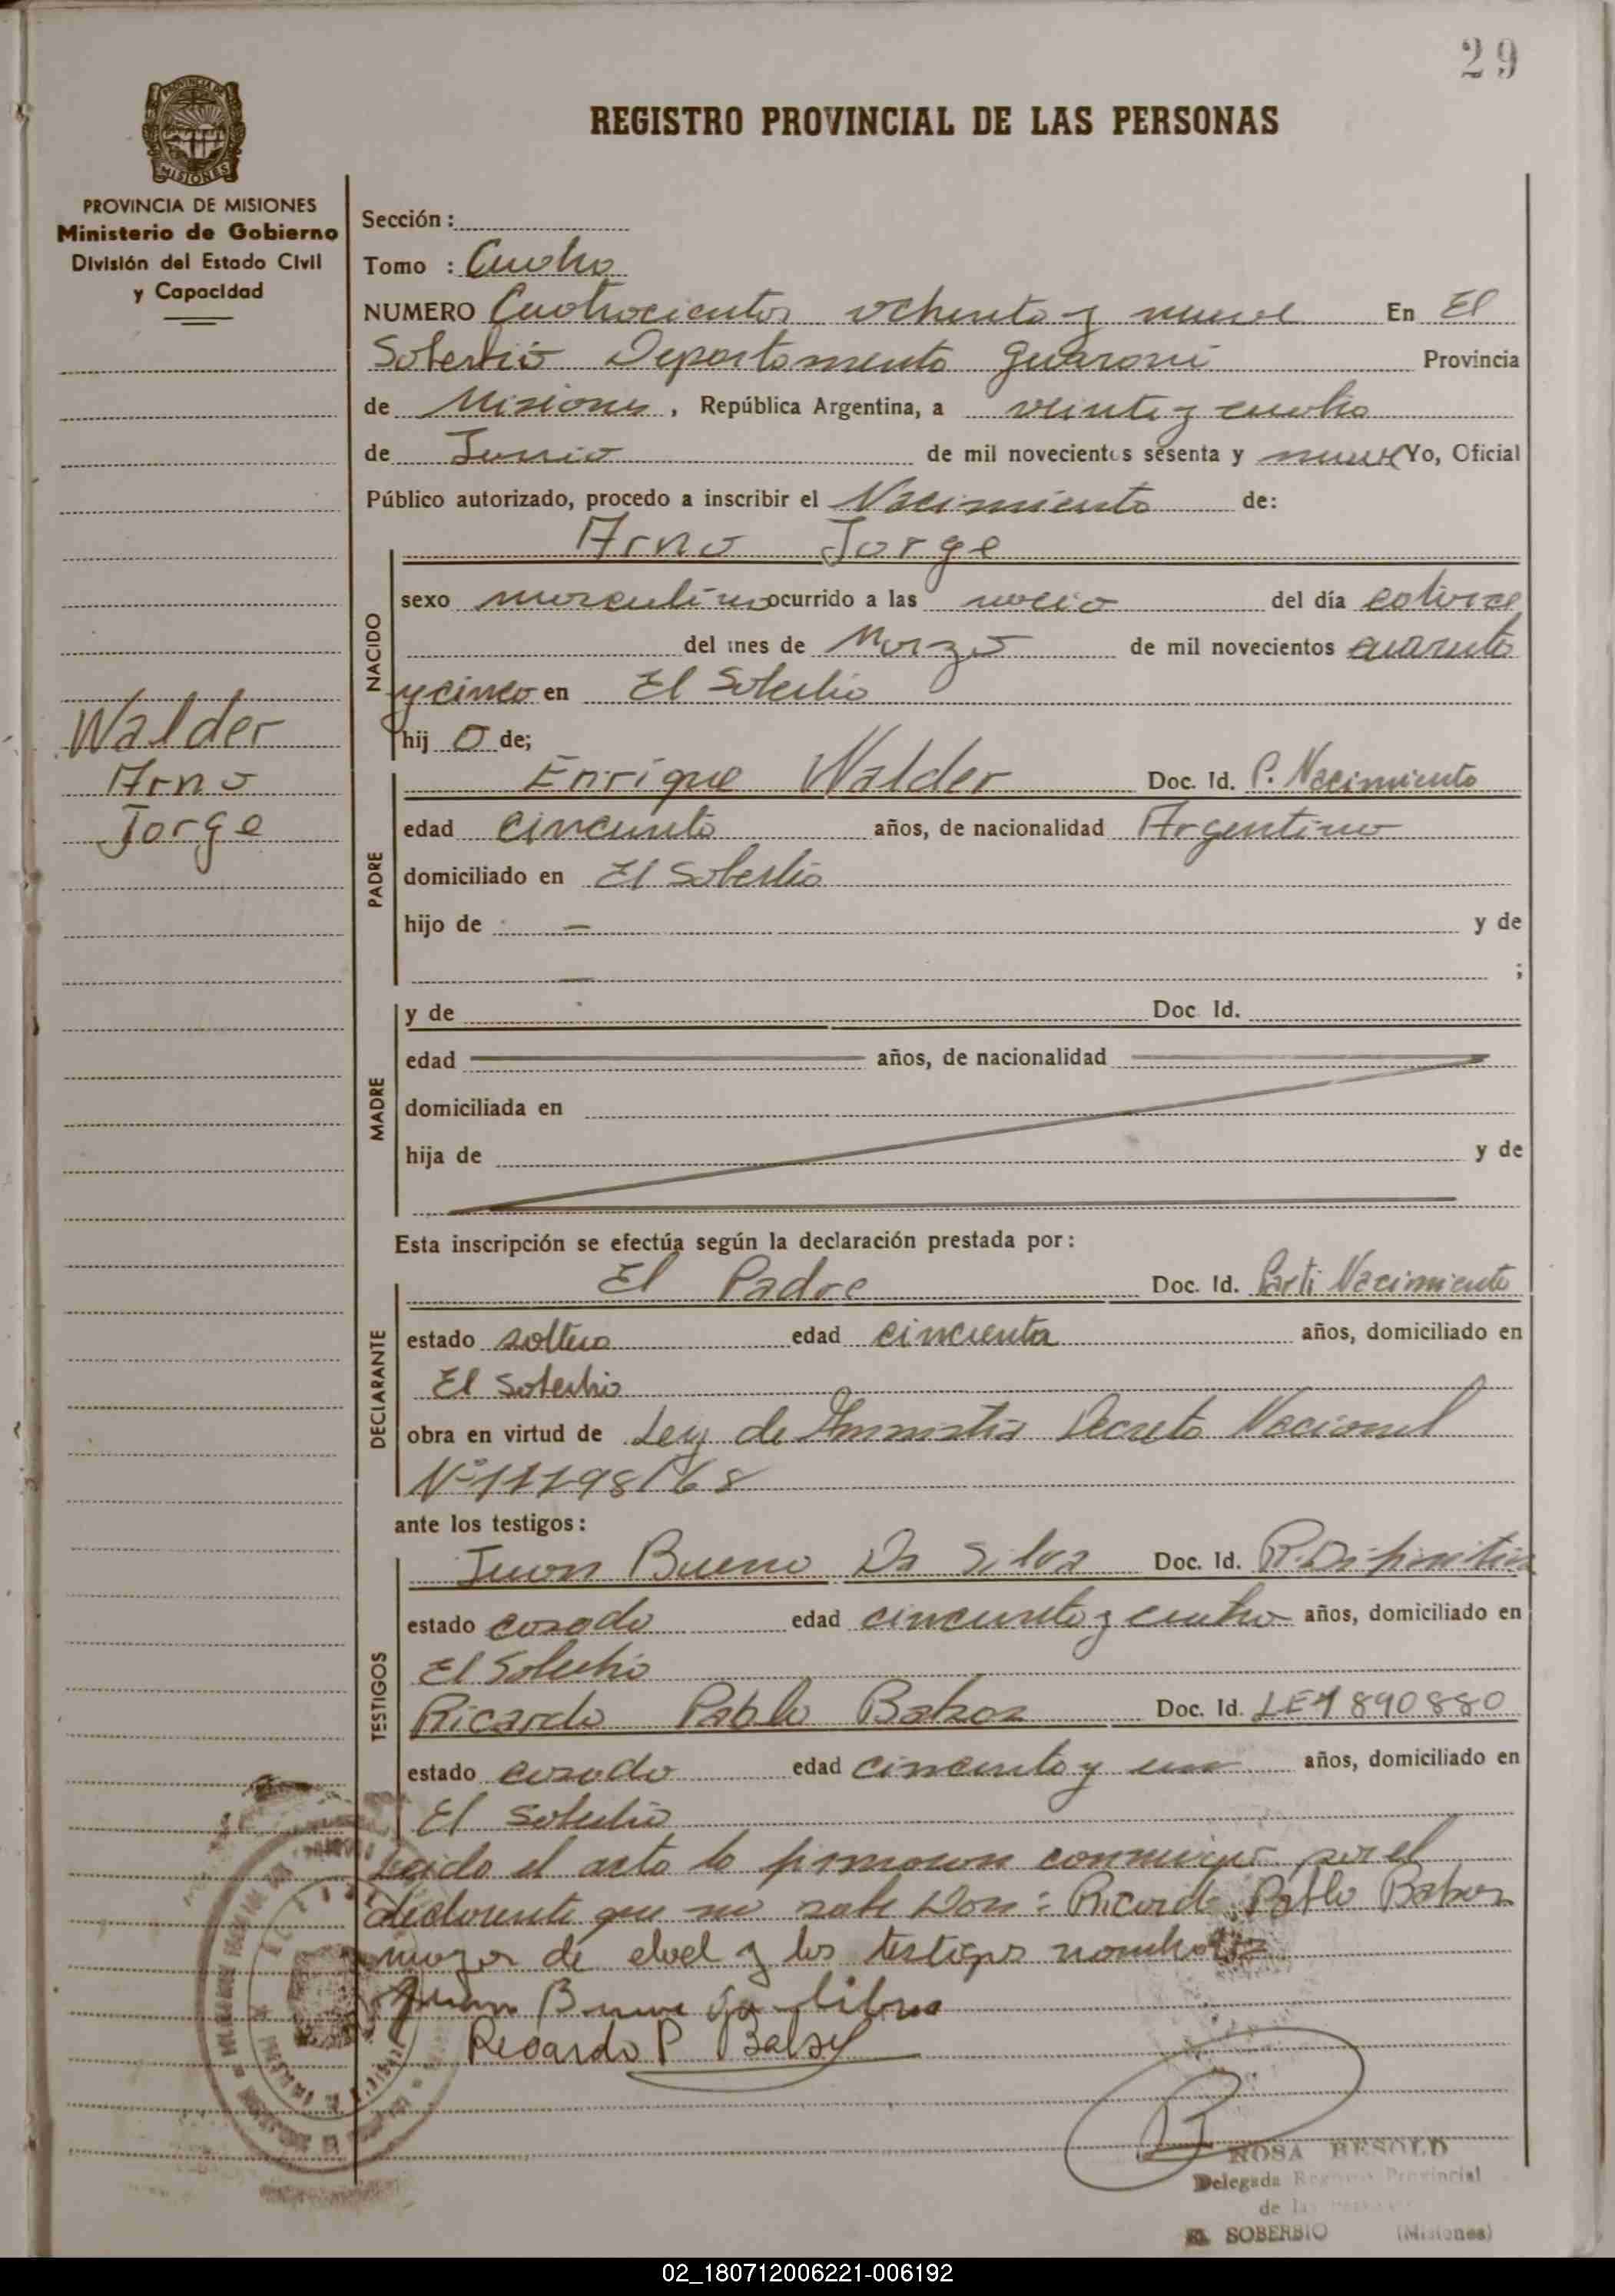 29
REGISTRO PROVINCIAL DE LAS PERSONAS
PROVINCIA DE MISIONES
Ministerio de Gobierno
División del Estado Civil
y Capacidad
Sección:
Tomo : Cuatro
NUMERO Cuatrocientos ochenta y nueve En El
Soberbio Departamento Guaraní Provincia
de Misiones, República Argentina, a veinte y cuatro
de Junio de mil novecientos sesenta y nueve Yo, Oficial
Público autorizado, procedo a inscribir el Nacimiento de:
Arno Jorge
NACIDO
sexo masculino ocurrido a las del día catorce
del mes de Marzo de mil novecientos cuarenta
y cinco en El Soberbio
hij o de;
Walder
Arno
Jorge
PADRE
Enrique Walder Doc. Id. P. Nacimiento
edad cincuenta años, de nacionalidad Argentino
domiciliado en El Soberbio
hijo de — y de
— ;
MADRE
y de Doc. Id.
edad años, de nacionalidad
domiciliada en
hija de y de
Esta inscripción se efectúa según la declaración prestada por:
DECLARANTE
El Padre Doc. Id. Parti Nacimiento
estado soltero edad cincuenta años, domiciliado en
El Soberbio
obra en virtud de Ley de Amnistia Decreto Nacional
Nº 17798/68
ante los testigos:
TESTIGOS
Juan Bueno Da Silva Doc. Id.
estado casado edad cincuenta y cuatro años, domiciliado en
El Soberbio
Ricardo Pablo Doc. Id. LE 1890880
estado casado edad cincuenta y un años, domiciliado en
El Soberbio
Leido el acta la firmaron conmigo por el
declarente que no sabe Don: Ricardo Pablo
mayor de edad y los testigos
Juan
Ricardo P
ROSA BESOLD
Delegada Registro Provincial
de las
EL SOBERBIO (Misiones)
02_180712006221-006192